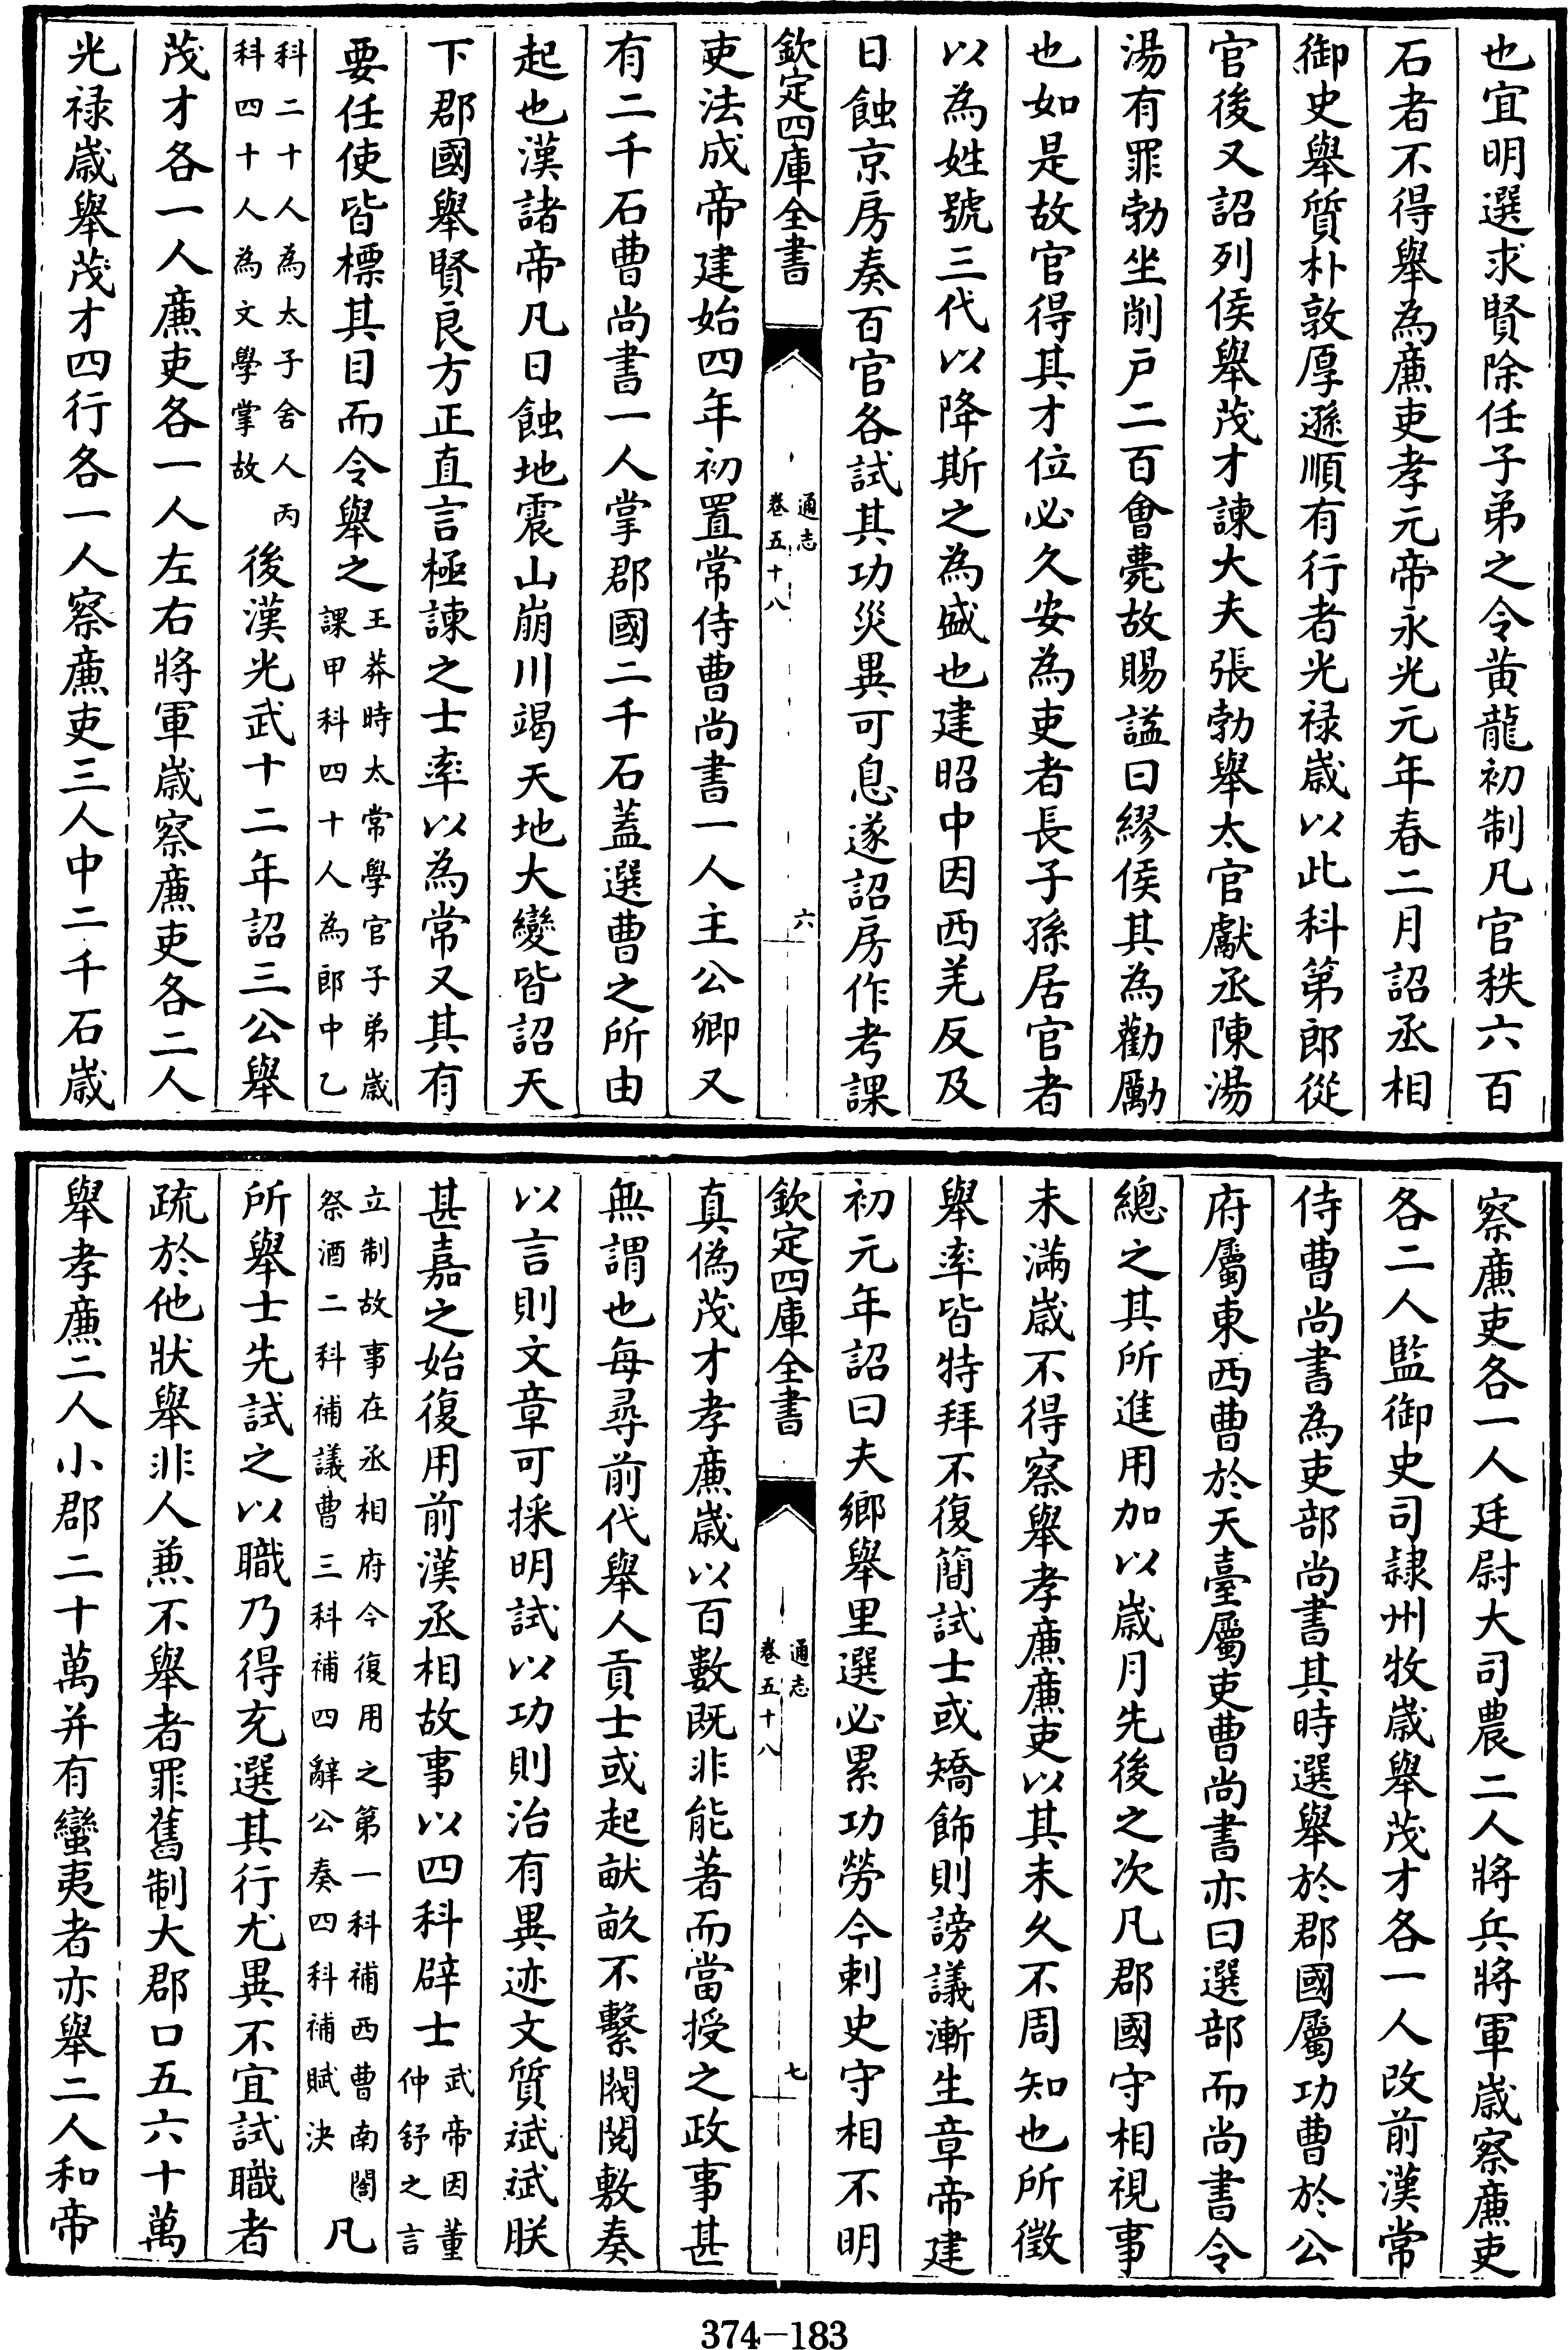 也宜明選求賢除任子弟之令黃龍初制凡官秩六百
石者不得舉為廉吏孝元帝永光元年春二月詔丞相
御史舉質朴敦厚遜順有行者光禄歲以此科第郎從
官後又詔列侯舉茂才諫大夫張勃舉太官獻丞陳湯
湯有罪勃坐削戶二百會薨故賜謚曰繆侯其為勸勵
也如是故官得其才位必久安為吏者長子孫居官者
以為姓號三代以降斯之為盛也建昭中因西羌反及
日蝕京房奏百官各試其功災異可息遂詔房作考課
欽定四庫全書
通志
卷五十八
六
吏法成帝建始四年初置常侍曹尚書一人主公卿又
有二千石曹尚書一人掌郡國二千石蓋選曹之所由
起也漢諸帝凡日蝕地震山崩川竭天地大變皆詔天
下郡國舉賢良方正直言極諫之士率以為常又其有
要任使皆標其目而令舉之王莽時太常學官子弟歲
課甲科四十人為郎中乙
科二十人為太子舍人丙
科四十人為文學掌故後漢光武十二年詔三公舉
茂才各一人廉吏各一人左右將軍歲察廉吏各二人
光禄歲舉茂才四行各一人察廉吏三人中二千石歲
察廉吏各一人廷尉大司農二人將兵將軍歲察廉吏
各二人監御史司隸州牧歲舉茂才各一人改前漢常
侍曹尚書為吏部尚書其時選舉於郡國屬功曹於公
府屬東西曹於天臺屬吏曹尚書亦曰選部而尚書令
總之其所進用加以歲月先後之次凡郡國守相視事
未滿歲不得察舉孝廉廉吏以其未久不周知也所徵
舉率皆特拜不復簡試士或矯飾則謗議漸生章帝建
初元年詔曰夫鄉舉里選必累功勞今刺史守相不明
欽定四庫全書
通志
卷五十八
七
真偽茂才孝廉歲以百數既非能著而當授之政事甚
無謂也每尋前代舉人貢士或起畎畝不繫閥閱敷奏
以言則文章可採明試以功則治有異迹文質斌斌朕
甚嘉之始復用前漢丞相故事以四科辟士武帝因董
仲舒之言
立制故事在丞相府今復用之第一科補西曹南閤
祭酒二科補議曹三科補四辭公奏四科補賦決凡
所舉士先試之以職乃得充選其行尤異不宜試職者
疏於他狀舉非人兼不舉者罪舊制大郡口五六十萬
舉孝廉二人小郡二十萬并有蠻夷者亦舉二人和帝
374-183